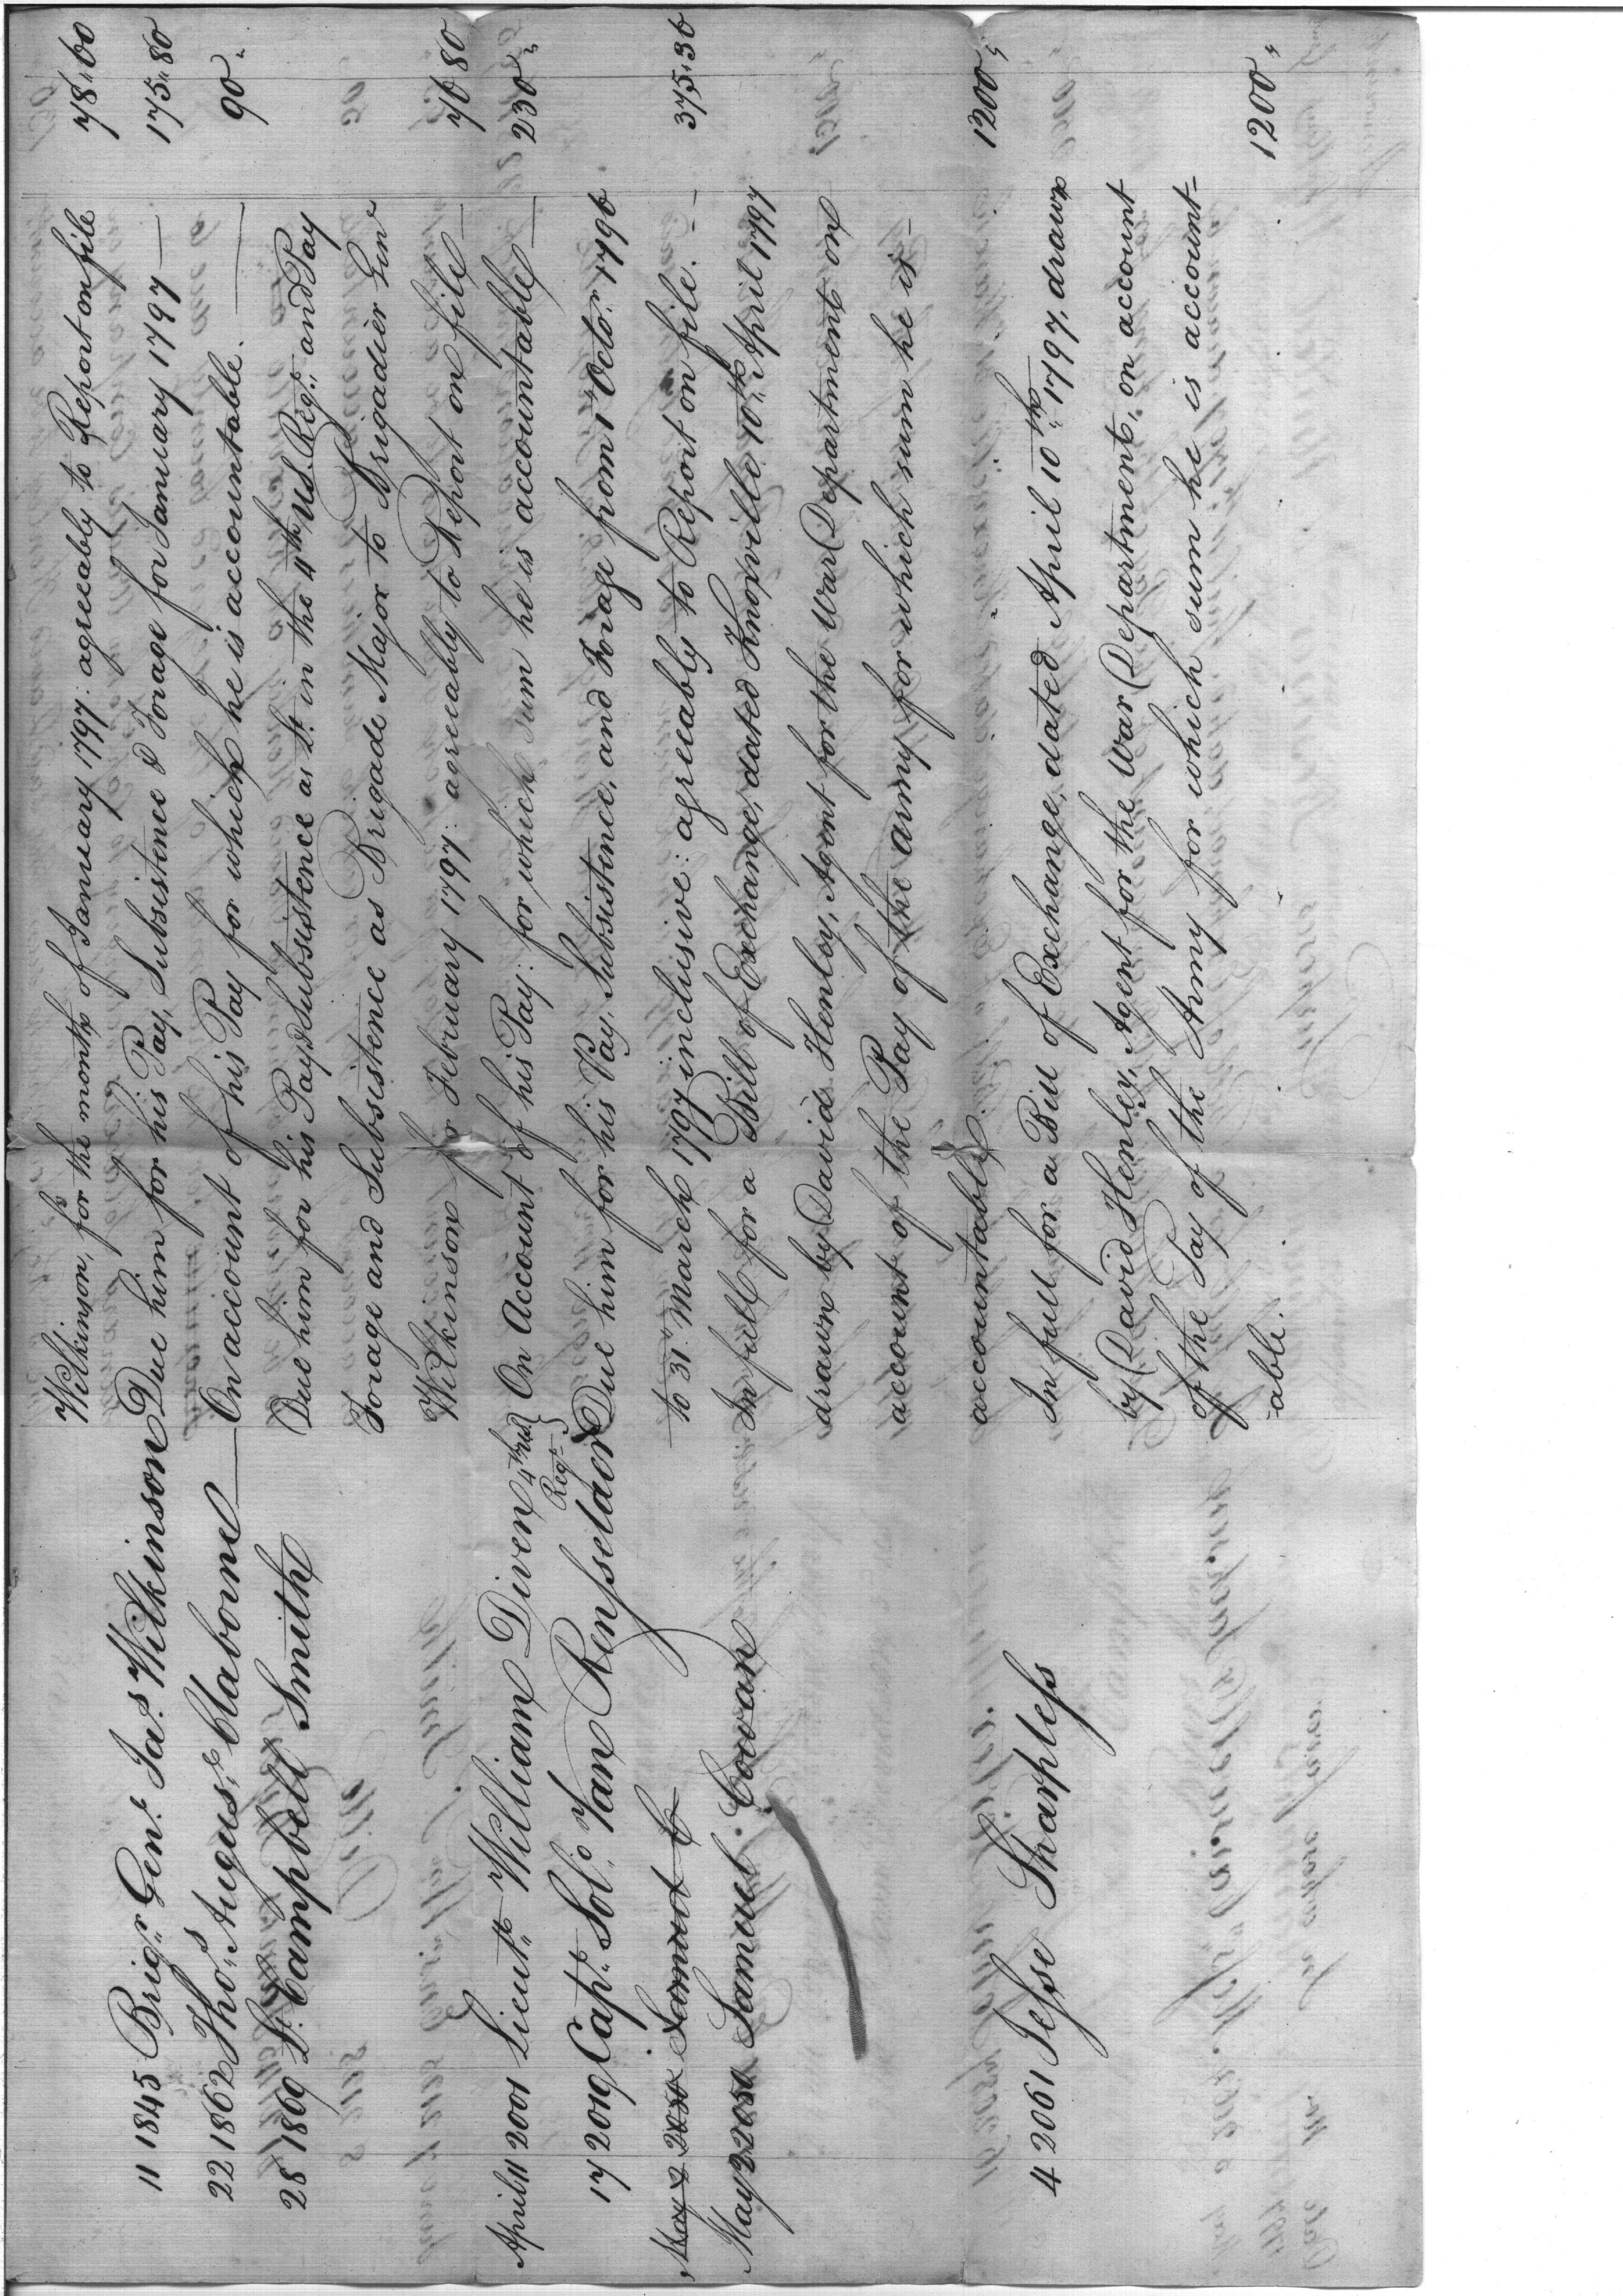 Wilkinson, for the month of January 1797: agreeably to Report on file 78.60
11 1845 Brigr. Genl. Jas. Wilkinson Due him for his Pay, Subsistence & Forage for January 1797 — 175.80
22 1862 Thos. Augus.e Claborne — On account of his Pay for which he is accountable. — 90.
28 1869 Lt. Campbell Smith Due him for his Pay & Subsistence as Lt. in the 4th US. Regt. and Pay
Forage and Subsistence as Brigade Major to Brigadier Genl
Wilkinson for February 1797: agreeably to Report on file — 76 80
April 11 2001 Lieutt. William Diven 4th US Regt. } On Account of his Pay: for which sum he is accountable — 230.
17 2019 Capt. Sol.o Van Rensselaer Due him for his Pay, Subsistence, and Forage from 1st Octor. 1796
to 31. March 1797 inclusive: agreeably to Report on file. - - 375.36
May 2 2050 Samuel C
May 2 2050 Samuel Cowan In full for a Bill of Exchange, dated Knoxville 10th. April 1797
drawn by David Henley, Agent for the War Department on
account of the Pay of the army for which sum he is -
accountable. 1200,
4 2061 Jesse Sharpless In full for a Bill of Exchange, dated April 10th. 1797, drawn
by David Henley, Agent for the War Department, on account
of the Pay of the Army for which sum he is account-
-able. 1200,